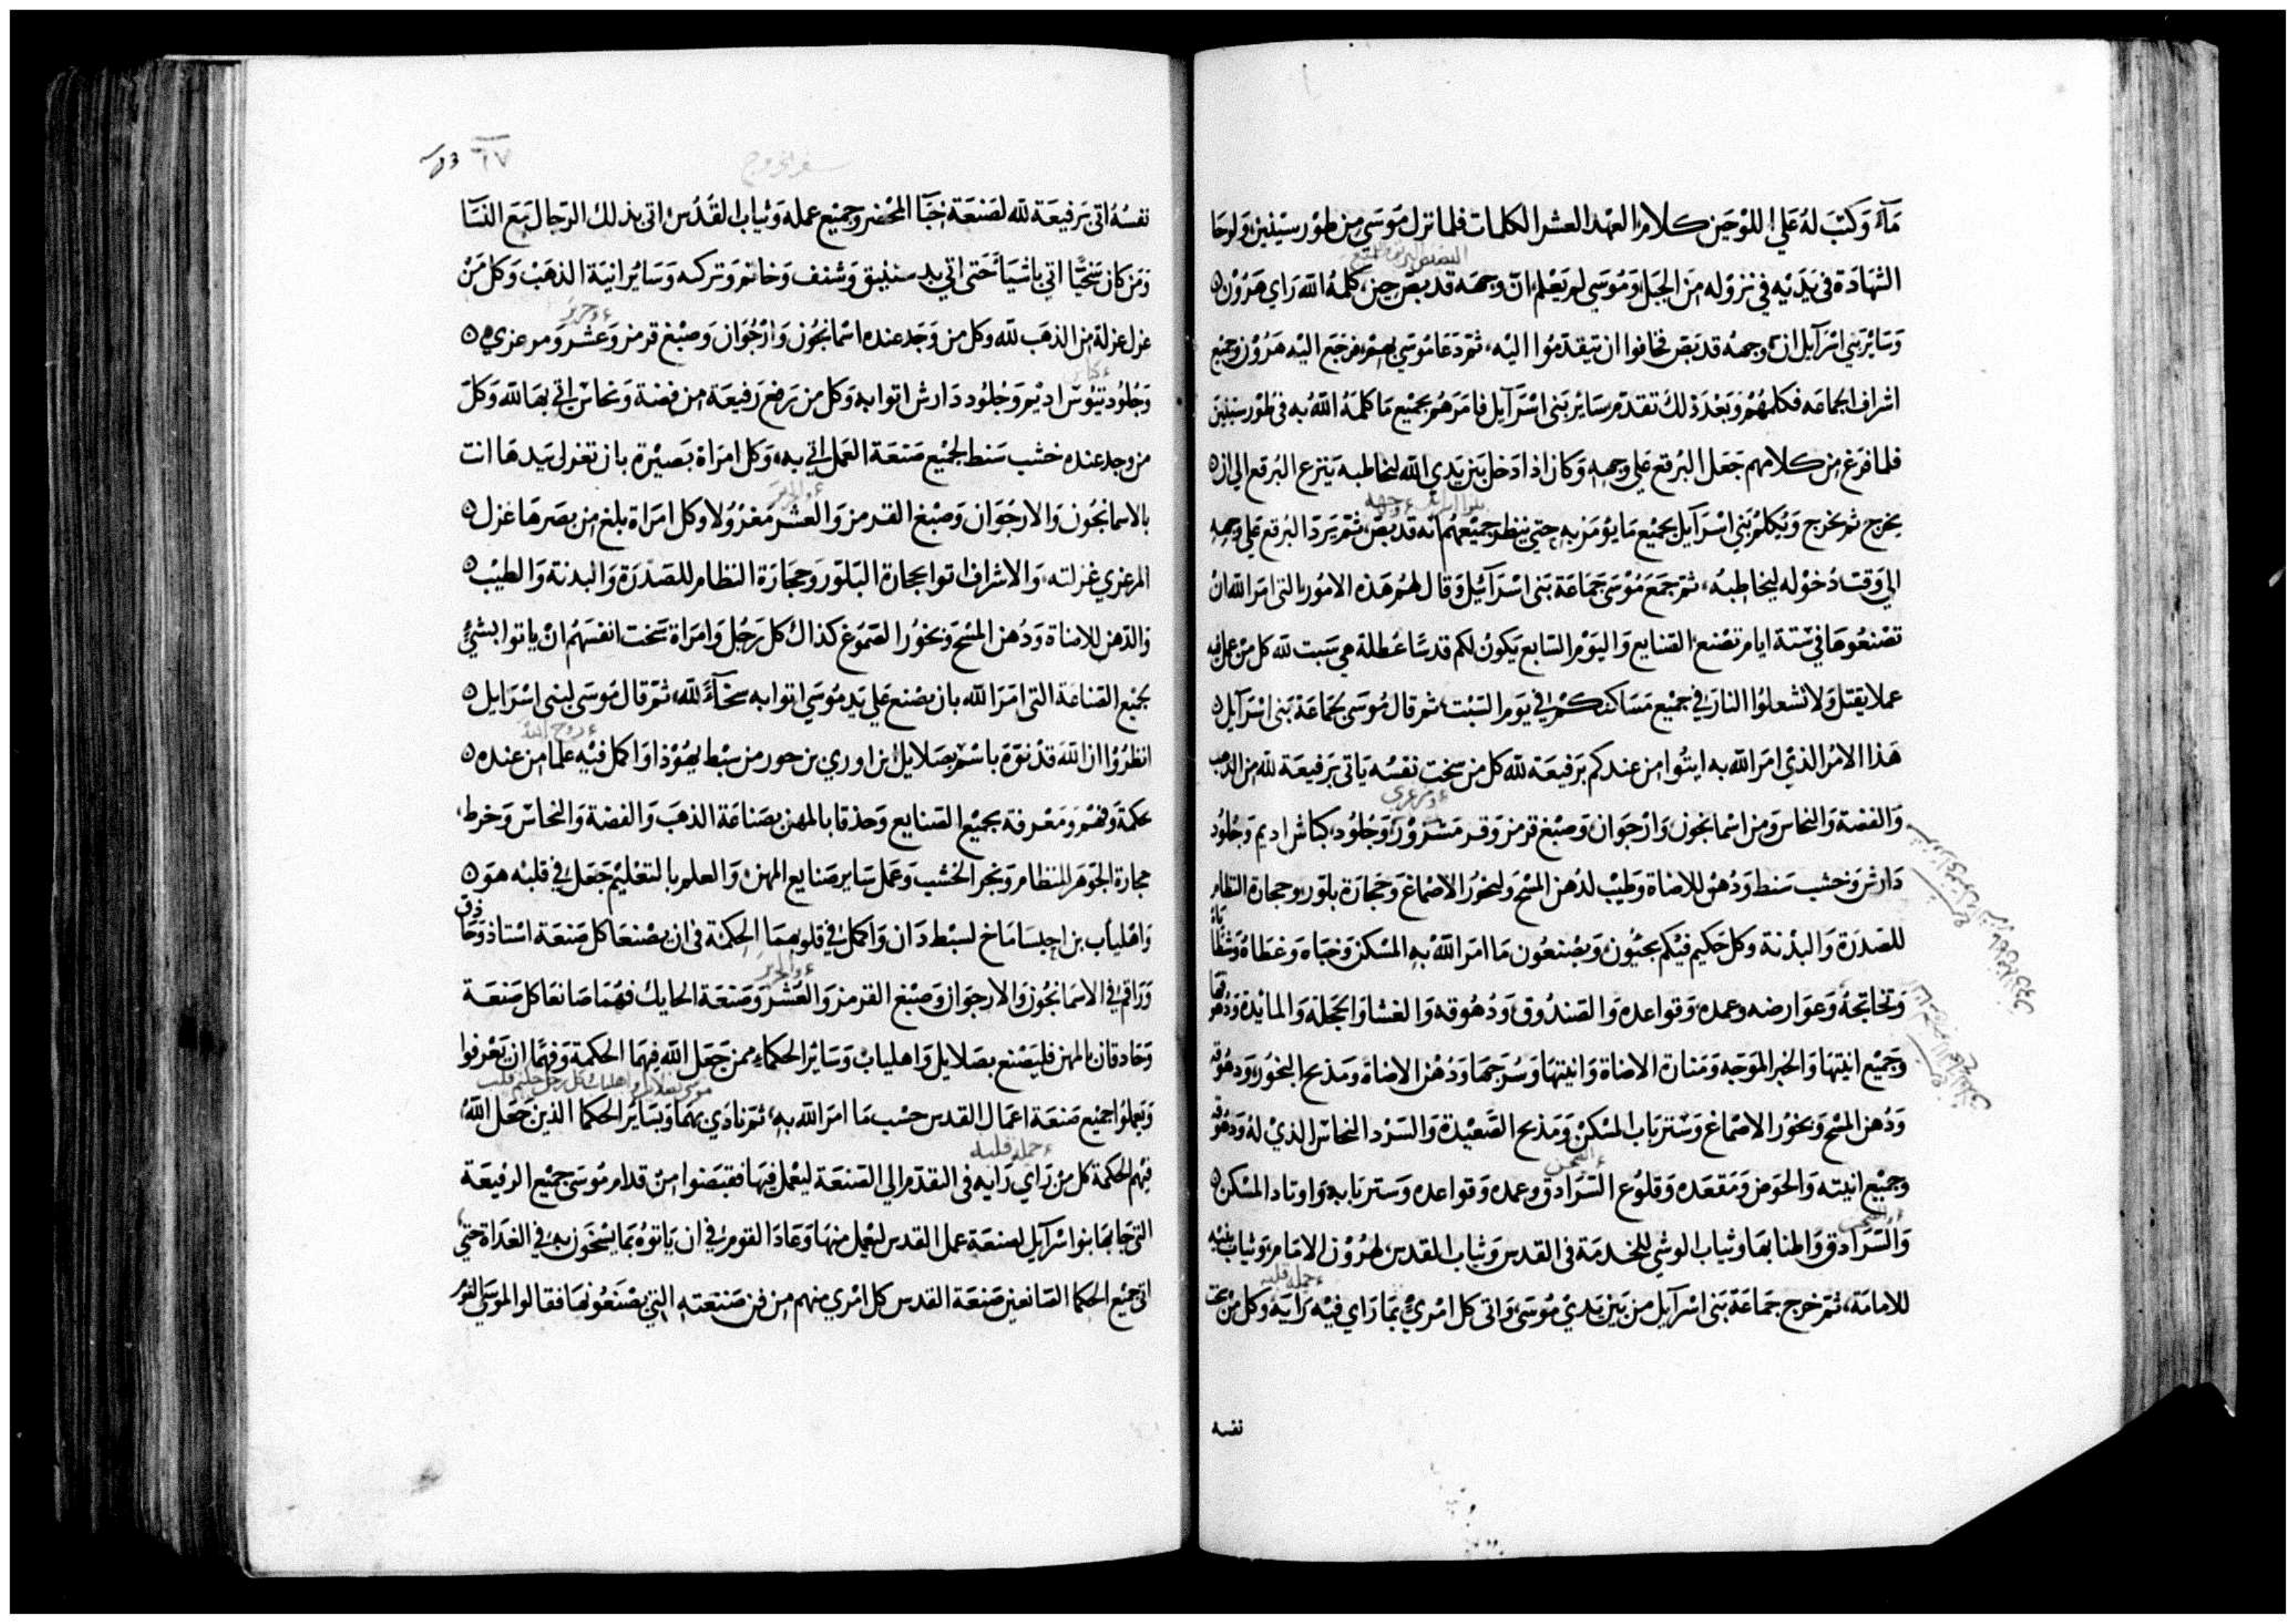 مآء وَكتبَ لهُ عَلي اللوْحَين كلام العهْد العشر الكلمات فلما نزل مُوسَى من طوْر سيْنين وَلوحَا
الشهَادَة فى يَدَيْه في نزوْله منَ الجبَل وَمُوسَي لم يَعْلم انّ وجهَه قد بصّ حين كلمهُ الله رَاي هَرُوْن
وَسَائرُ بَني اسْرَآيل ان وجهه قد بَصّ فخافوا ان يتقدّمُوا اليْه ثمّ دَعَا مُوسَي بهمْ فرجَعَ اليْه هَرُوْن وَجميْع
اشراف الجماعَه فكلمهُمْ وَبَعْد ذلكَ تقدّم سَائر بَني اسْرَآيل فامَرَهُمْ بجميْع مَا كلمَهُ اللهُ به في طوْر سيْنين
فلما فرَغ من كلامهم جَعَل البُرقع عَلي وجههِ وَكان اذا دَخل بَين يَدَي الله لخاطبه يَنزع البُرقع الي ان
يخرج ثم يخرج وَيُكلمُ بَني اسْرَآيل بجميْع مَا يؤمَر بهِ حتي ينظر جميْعهُم انه قد بصّ ثمّ يَردّ البُرقع عَلي وجههِ
الي وَقت دُخوْله ليخاطبهُ ثمّ جمَعَ مُوْسَي جَمَاعَة بَنى اسْرَآئيل وَقال لهُم هَذه الامُور التى امَرَ الله ان
تصْنعُوهَا في سّتة ايام تصْنع الصّنايع وَاليَوْم السّابع يَكونُ لكم قدسًا عُطلة هي سَبت لله كل منْ عمل فيه
عملا يقتل وَلا تشعلوُا النارَ في جميْع مَسَاكنكمْ في يَوم السّبْت ثم قال مُوسَى بجمَاعَة بَنى اسْرَآيل
هَذا الامْر الذيْ امَرَ الله به ايتُوا من عندكم برَفيعَة لله كل من سخت نفسُه يَاتى برَفيعَة لله من الذهب
وَالفضة وَالنحاس وَمن اسْمانجون وَارْجوَان وَصبْغ قرمز وَقز مَشرُوْر وَجُلوُد كباش اديم وَجُلوُد
دَارش وَخشب سَنط وَدُهنْ للاضاة وَطيْب لدُهن المسْح وَلبخوُر الاصمَاغ وَحجارَة بلوّر وحجارة النظام
للصّدرَة وَالبدْنة وكل حَكيم فيْكم يجيُون وَيصْنعُون مَا امَر اللهُ بهِ المسْكن وَخبَاه وَغطَاهُ وَشظَا
وَتخاتجهُ وَعوَارضه وعمده وَقواعده وَالصندُوق وَدُهُوقه وَالغشا وَالحجلة وَالمايْدة وَدُهُو
وَجميْع انيتهَا وَالخبز الموَجّه وَمَنارة الاضاة وَانيتهَا وَسُرجهَا وَدُهْن الاضاة وَمَذبح البخوُر وَدهُوقه
وَدُهن المسْح وَبخوُر الاصْماغ وَسترَ بَاب المسْكن وَمَذبح الصَّعيْدة وَالسّرْد النحاسّ الذيْ لهُ وَدهُوقه
وَجميْع انيته وَالحوَض وَمَقعَده وَقلوُع السّرَادق وعمده وَقواعده وَستر بَابه وَاوتاد المسْكن
وَالسّرَادق وَاطنابهَا وثياب الوشي للخدمَة في القدس وَثيابَ القدس لهرُوْن الامَام وَثيابَ بنيْه
للامامَة ثمّ خرج جمَاعَة بَنى اسْرَآيل من بَين يَديْ مُوسَى وَاتى كل امْريٍْ بمَا رَاي فيْه رَايَهُ وَكل مَنْ سخت
نفسه
سفر الخروج
٦٧
نفسُهُ اتى برَفيعَة لله لصَنعَة خبَا المحْضر وجميْع عمله وَثياب القُدْس اتى بذلك الرّجال مَعَ النسَآ
وَمن كان سَخيًّا اتي باشيَا حَتى اتي بد سنبيق وَشنف وَخاتم وَتركسه وَسَايُر انيَة الذهَبْ وَكل مَنْ
عزل عزلة من الذهَب لله وَكل من وَجَد عنده اسْمَانجُون وَارْجُوَان وَصبْغ قرمز وَعشر وَمرعزي
وَجُلوُد تيُوْسّ اديْم وَجُلوُد دَارش اتوا به وَكل من يَرفعْ رَفيعَة من فضة وَنحاسْ اتي بهَا لله وَكلّ
من وجد عنده خشب سَنط لجميْع صَنعَة العَمل اتي به وَكل امرَاة بَصيْرة بان تغزل بيَدهَا اتت
بالاسمانجُون وَالارجُوَان وَصبْغ القرمز وَالعشر مَغزُوْلا وكل امرَاة بلغ من بصَرهَا غزل
المرعزي غزلته وَالاشراف اتوا بحجارة البَلوّر وَحجَارَة النظام للصّدرَة وَالبدنة وَالطيْب
وَالدّهن للاضاة وَدُهن المسْح وَبخوُر الصّمُوغ كذلك كل رَجُل وَامرَاة سَخت انفسَهُم انْ ياتوا بشيٍْ
لجمْيع الصّناعَة التى امَرَ الله بان يصْنع عَلي يَد مُوسَى اتوا به سخآءً لله ثمّ قال مُوسَى لبنى اسْرَايل
انظرُوْا ان اللهَ قدْ نوّهَ باسْم بصَلايل ابن اوري بن حور من سبْط يهُوْذا وَاكمل فيْه علما من عنده
بحكمة وَفهْم وَمَعْرفة بجميْع الصّنايع وَحذقا بالمهن بصَناعَة الذهَبَ وَالفضة وَالنحاسْ وَخرط
حجارة الجوْهَر للنظام وَنجر الخشب وَعمَل سَاير صَنايع المهن وَالعلم بالتعْليْم جَعَل في قلبْه هوَ
وَاهْلياب بن احيسَامَاخ لسبْط دَان وَاكمل في قلوبهمَا الحكمة فى ان يصْنعَا كل صَنعَة استاذ وَحَاذق
وَرَاقم في الاسْمَانجُون وَالارجوَان وَصبْغ القرمز وَالعُشر وَصَنعَة الحايك فهُمَا صَانعَا كل صَنعَة
وَحَادقان بالمهن فليَصْنع بصَلايل وَاهليابْ وَسَائر الحكماء ممن جَعَل الله فيهَمَا الحكمة وَفهَّما ان يَعْرفوا
وَيعملوُا جميْع صَنعَة اعمَال القدس حسْب مَا امرَ الله بهِ ثمّ نادَي بهمَا وَبسَائر الحكما الذين جَعَل اللهُ
فيهم الحكمة كل منْ رَاي رَايه فى التقدّم الي الصّنعَة ليَعْمل فيهَا فقبَضوا منْ قدام مُوسَى جميْع الرفيعَة
التى جَا بهَا بنوا اسْرَآيل لصنعَة عمل القدس ليَعْمل منهَا وَعَادَ القوم في ان يَاتوهُ بمَا يسْخون به في الغدَاة حتي
اتى جميْع الحكما الصّانعين صَنعَة القدس كل امْري منهم من فن صَنعَتهِ التي يصْنعُونهَا فقالوا لموسَي القوم